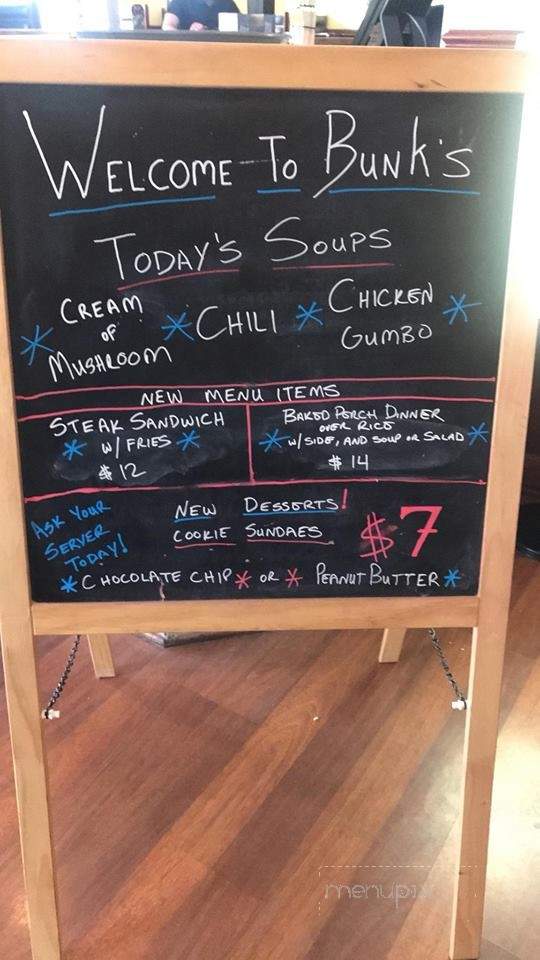 Welcome To Bunk's
Today's Soups
Cream of Mushroom * Chili * Chicken Gumbo
New Menu Items
Steak Sandwich
w/ Fries
$12
Baked Perch Dinner
over Rice
w/ side, and soup or salad
$14
Ask Your
Server
Today!
New Desserts!
Cookie Sundaes
$7
* Chocolate Chip * or * Peanut Butter *
menupix